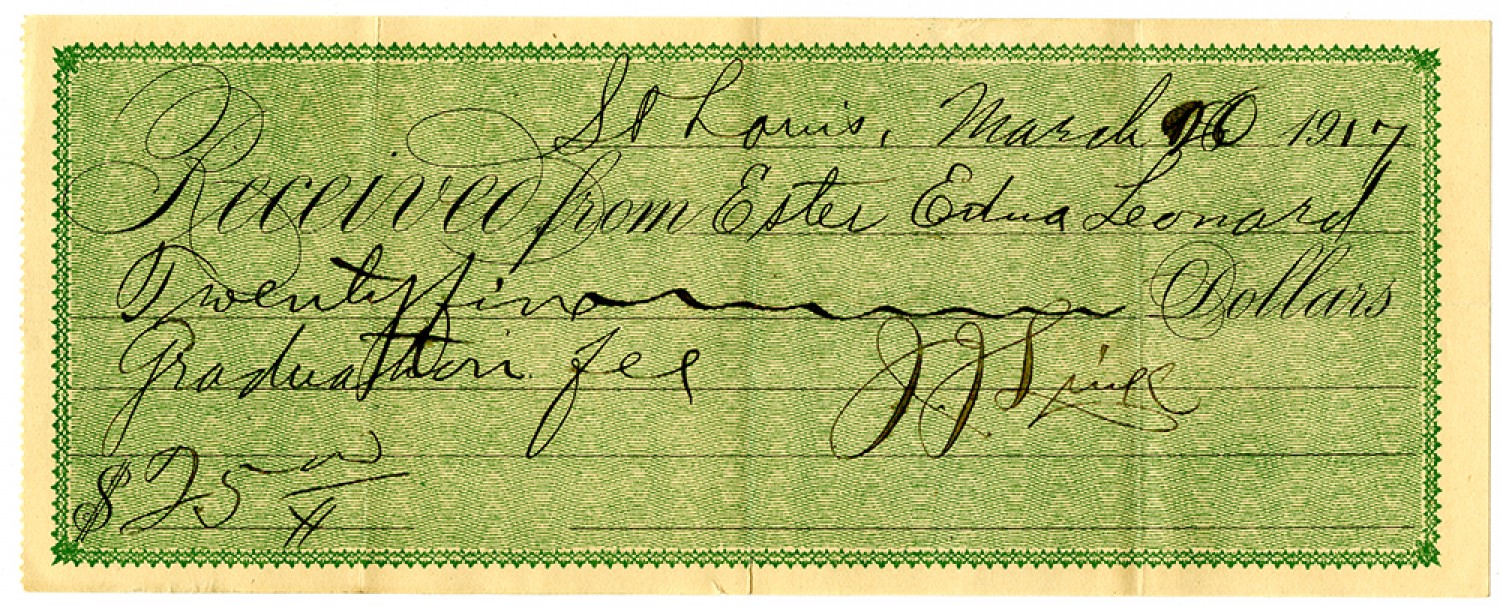 St Louis, March 1917
Received from Ester Edna Leonard
Twenty five Dollars
Graduation fee J J Link
$25 00/xx